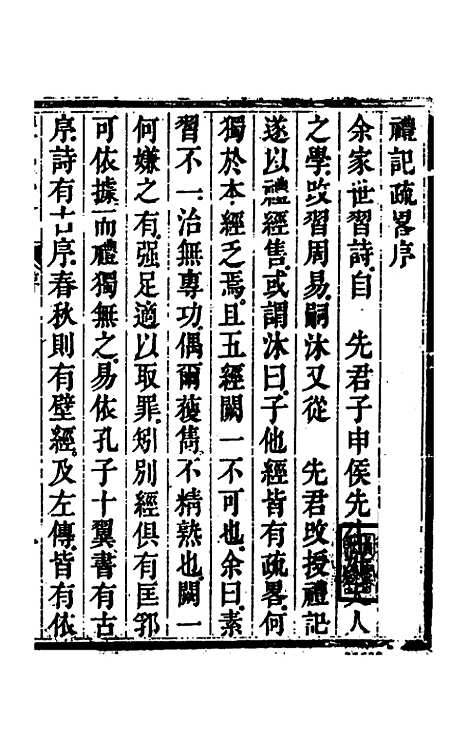 禮記疏畧序
余家世習詩自 先君子申侯先人
之學攺習周易嗣沐又從 先君攺授禮記
遂以禮經售或謂沐曰子他經皆有疏畧何
獨於本經乏焉且五經闕一不可也余曰素
習不一治無專功偶爾獲雋不精熟也闕一
何嫌之有强足適以取罪矧別經俱有匡郛
可依據而禮獨無之易依孔子十翼書有古
序詩有古序春秋則有壁經及左傳皆有依